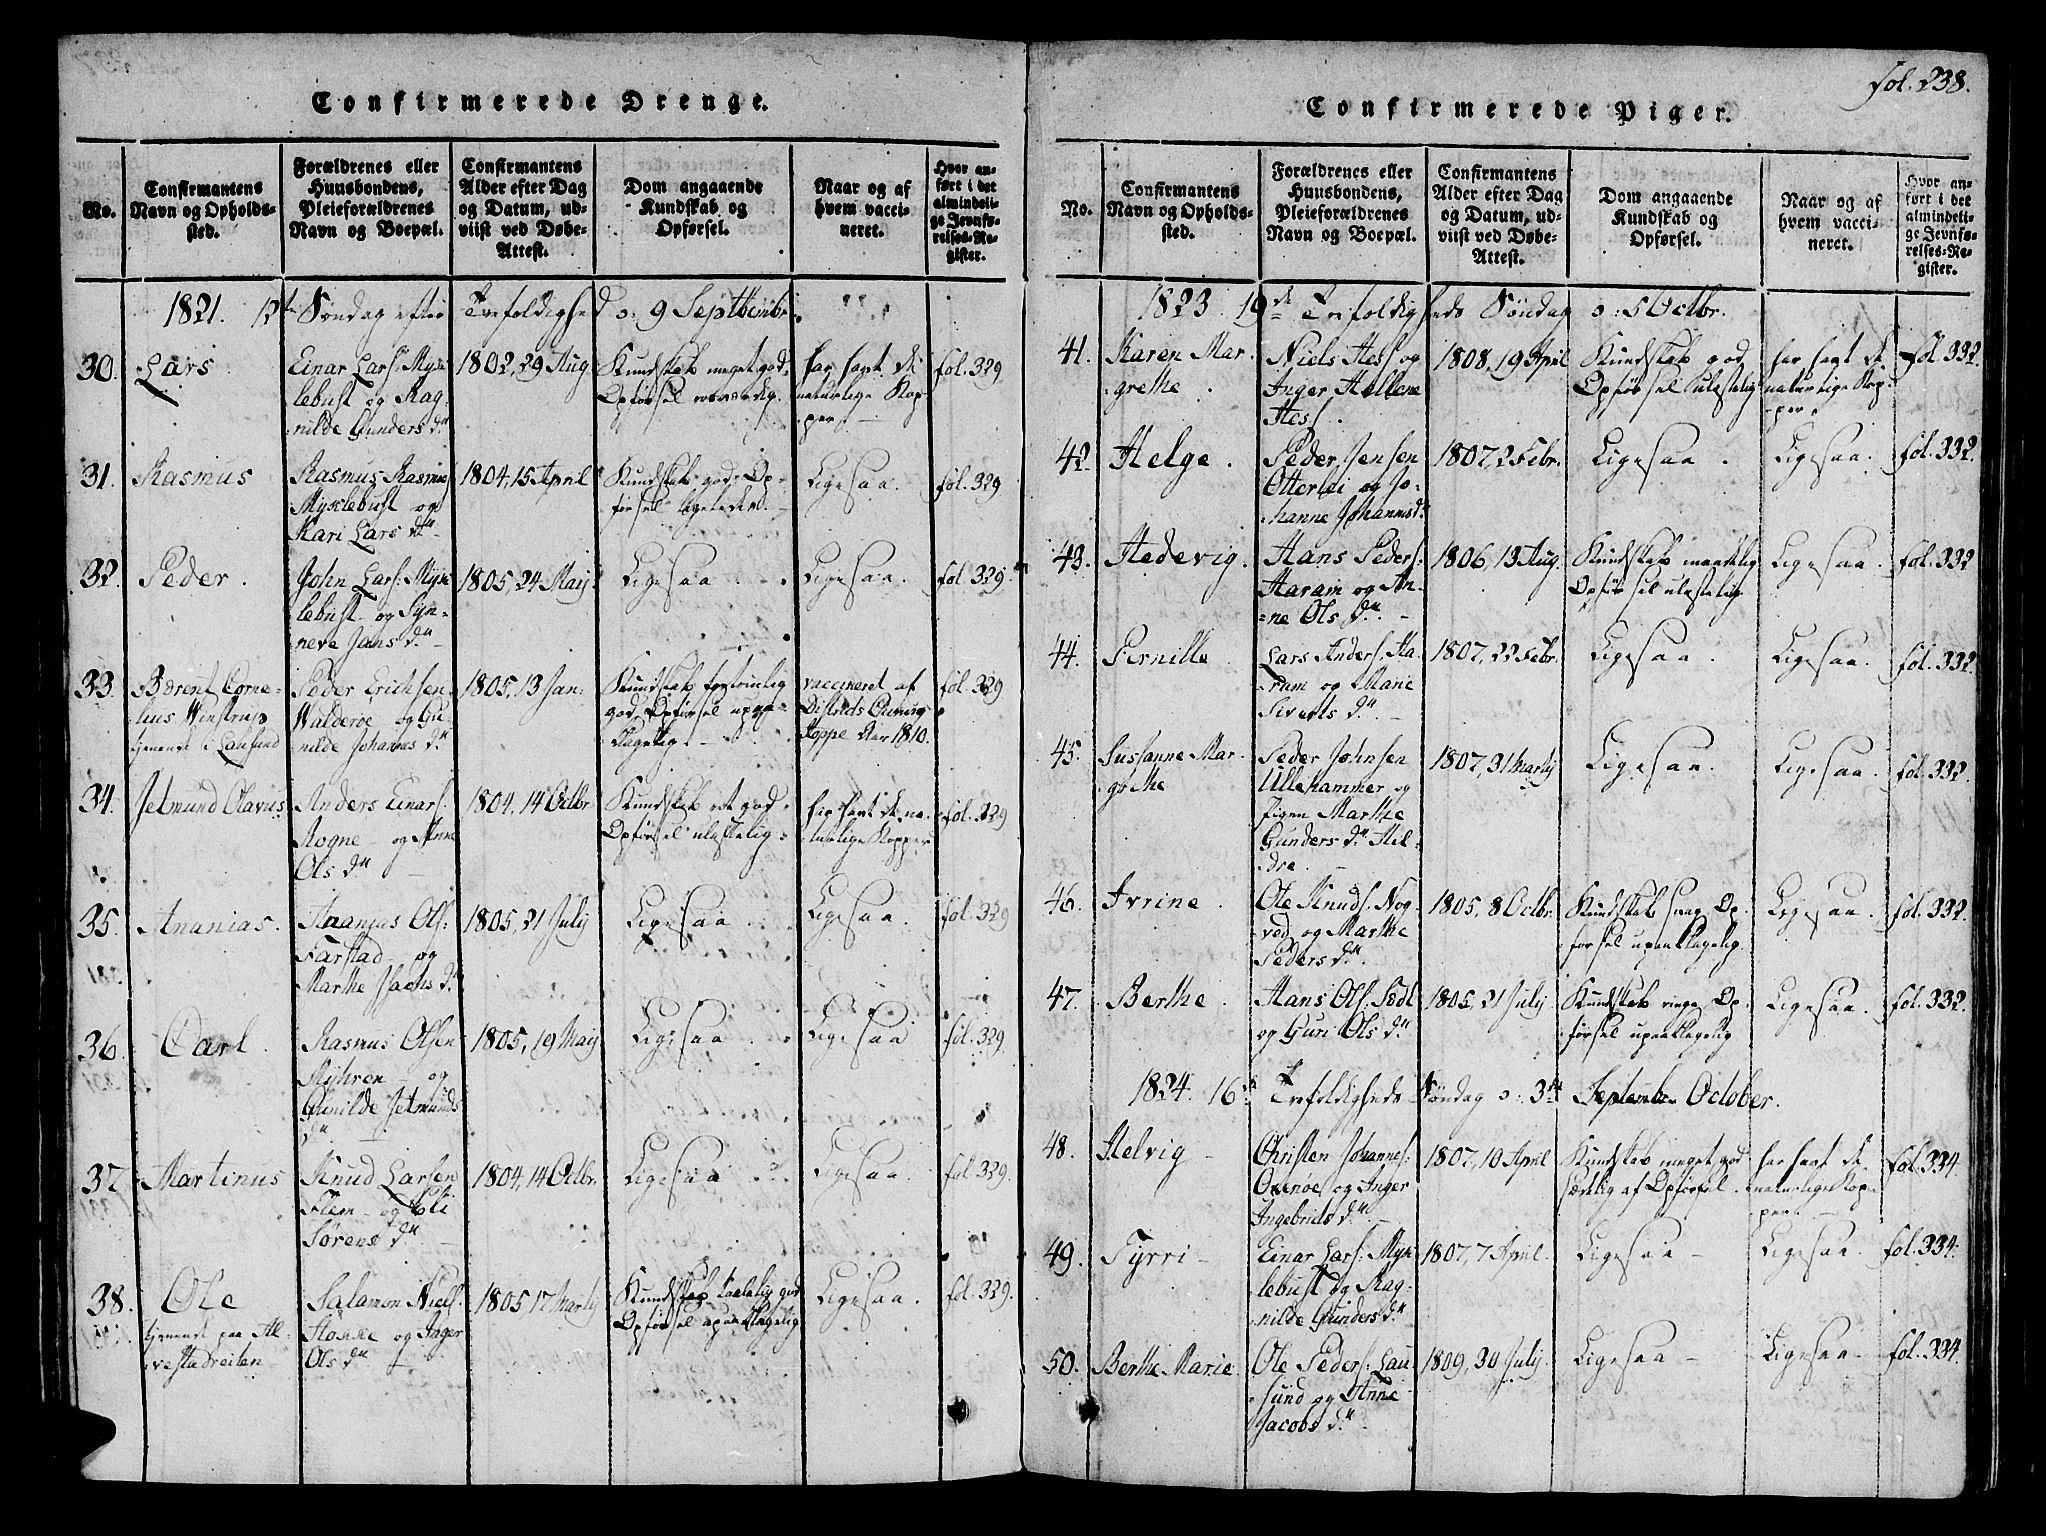 Confirmerede Drenge.
No.
Confirmantens
Navn og Opholds-
sted.
Forældrenes eller
Huusbondens,
Pleieforældrenes
Navn og Boepæl.
Confirmantens
Alder efter Dag
og Datum, ud-
viist ved Døbe-
Attest.
Dom angaaende
Kundskab og
Opførsel.
Naar og af
hvem vacci-
neret.
Hvor an-
ført i det
almindeli-
ge Jevnfø-
relses-Re-
gister.
1821. 12te Søndag efter Trefoldighed o: 9 Septbr.
30. Lars
Einar Lars: Myk-
lebust og Rag-
nilde Gunders d.
1802, 29 Aug
Kundskab meget god,
Opførsel
har havt de
naturlige Kop-
per.
fol. 329
31. Rasmus
Rasmus Rasmus
Myklebust og
Kari Lars d.
1804, 15 April
Kundskab god, Op-
førsel ligeledes.
Ligesaa.
fol. 329
32. Peder.
John Lars: Myk-
lebust og Syn-
neve Jans d.
1805, 24 Maij
Ligesaa
Ligesaa.
fol. 329.
33. Bærent Corne-
lius Winstrup
tjenende i Lausund
Peder Erichsen
Walderøe og Gu-
nilde Johannes d.
1805, 13 Jan:
Kundskab
god, Opførsel upaa-
klagelig.
vaccineret af
Districts Chirurg
Hoppe 1810.
fol. 329
34. Jetmund Olavus
Anders Einars:
Rogne og Anne
Ols d.
1804, 14 Octbr
Kundskab ret god
Opførsel ulastelig
har havt de na-
turlige Kopper
fol. 329
35. Ananias.
Ananias Ols:
Farstad og
Marthe Isachs d.
1805, 21 July
Ligesaa
Ligesaa.
fol. 329
36. Carl
Rasmus Olsen
Myhren og
Gunilde Jetmunds
d.
1805, 19 Maij
Ligesaa
Ligesaa
fol. 329.
37 Martinus
Knud Larsen
Flem og Eli
Sørens d.
1804, 14 Octbr.
Ligesaa
Ligesaa.
fol. 329.
38. Ole
tjenende paa Al-
vestadreiten
Salamon Niels:
Stokke og Inger
Ols d.
1805, 17 Martij
Kundskab taalelig god
Opførsel upaaklagelig
Ligesaa.
fol. 329.
fol. 238.
Confirmerede Piger.
No.
Confirmantens
Navn og Opholds-
sted.
Forældrenes eller
Huusbondens,
Pleieforældrenes
Navn og Boepæl.
Confirmantens
Alder efter Dag
og Datum, ud-
viist ved Døbe-
Attest.
Dom angaaende
Kundskab og
Opførsel.
Naar og af
hvem vacci-
neret.
Hvor an-
ført i det
almindeli-
ge Jevnfø-
relses-Re-
gister.
1823. 19de Trefoldigheds Søndag o: 5 Octbr.
41. Karen Mar-
grethe
Niels Hess og
Inger Hellene
Hess.
1808, 19 April
Kundskab god
Opførsel ulastelig
har havt de
naturlige Kop-
per.
fol. 332.
42 Helge.
Peder Jensen
Otterlei og Jo-
hanne Johannes d.
1807, 2 Febr.
Ligesaa.
Ligesaa.
fol. 332.
43. Hedevig.
Hans Peders:
Haram og An-
ne Ols d.
1806, 13 Aug.
Kundskab maadelig
Opførsel ulastelig
Ligesaa.
fol. 332
44. Pernille
Lars Anders: Ha-
ram og Marie
Siverts d.
1807, 22 Febr.
Ligesaa.
Ligesaa.
fol. 332.
45. Sussanne Mar-
grethe
Peder Johnsen
Ullehammer og
Pigen Marthe
Gunders d. Hil-
dre.
1807, 31 Martij
Ligesaa.
Ligesaa.
fol. 332.
46. Ivrine.
Ole Knuds: Nog-
ved og Marthe
Peders d.
1805, 8 Octbr.
Kundskab svag, Op-
førsel upaaklagelig.
Ligesaa.
fol. 332.
47. Berthe.
Hans Ols:
og Guri Ols d.
1805, 21 July
Kundskab ringe, Op-
førsel upaaklagelig
Ligesaa.
fol. 332.
1824. 16de Trefoldigheds Søndag o: 3die September October.
48. Helvig
Christen Johannes:
Oxenøe og Inger
Ingebrigts d.
1807, 10 April
Kundskab meget god
sædelig af Opførsel.
har havt de
naturlige Kop-
per.
fol. 334.
49. Tyrri
Einar Lars: Myk-
lebust og Rag-
nilde Gunders d.
1807, 7 April.
Ligesaa
Ligesaa.
fol. 334.
50. Berthe Marie.
Ole Peders: Lau-
sund og Anne
Jacobs d.
1809, 30 July
Ligesaa
Ligesaa
fol. 334.